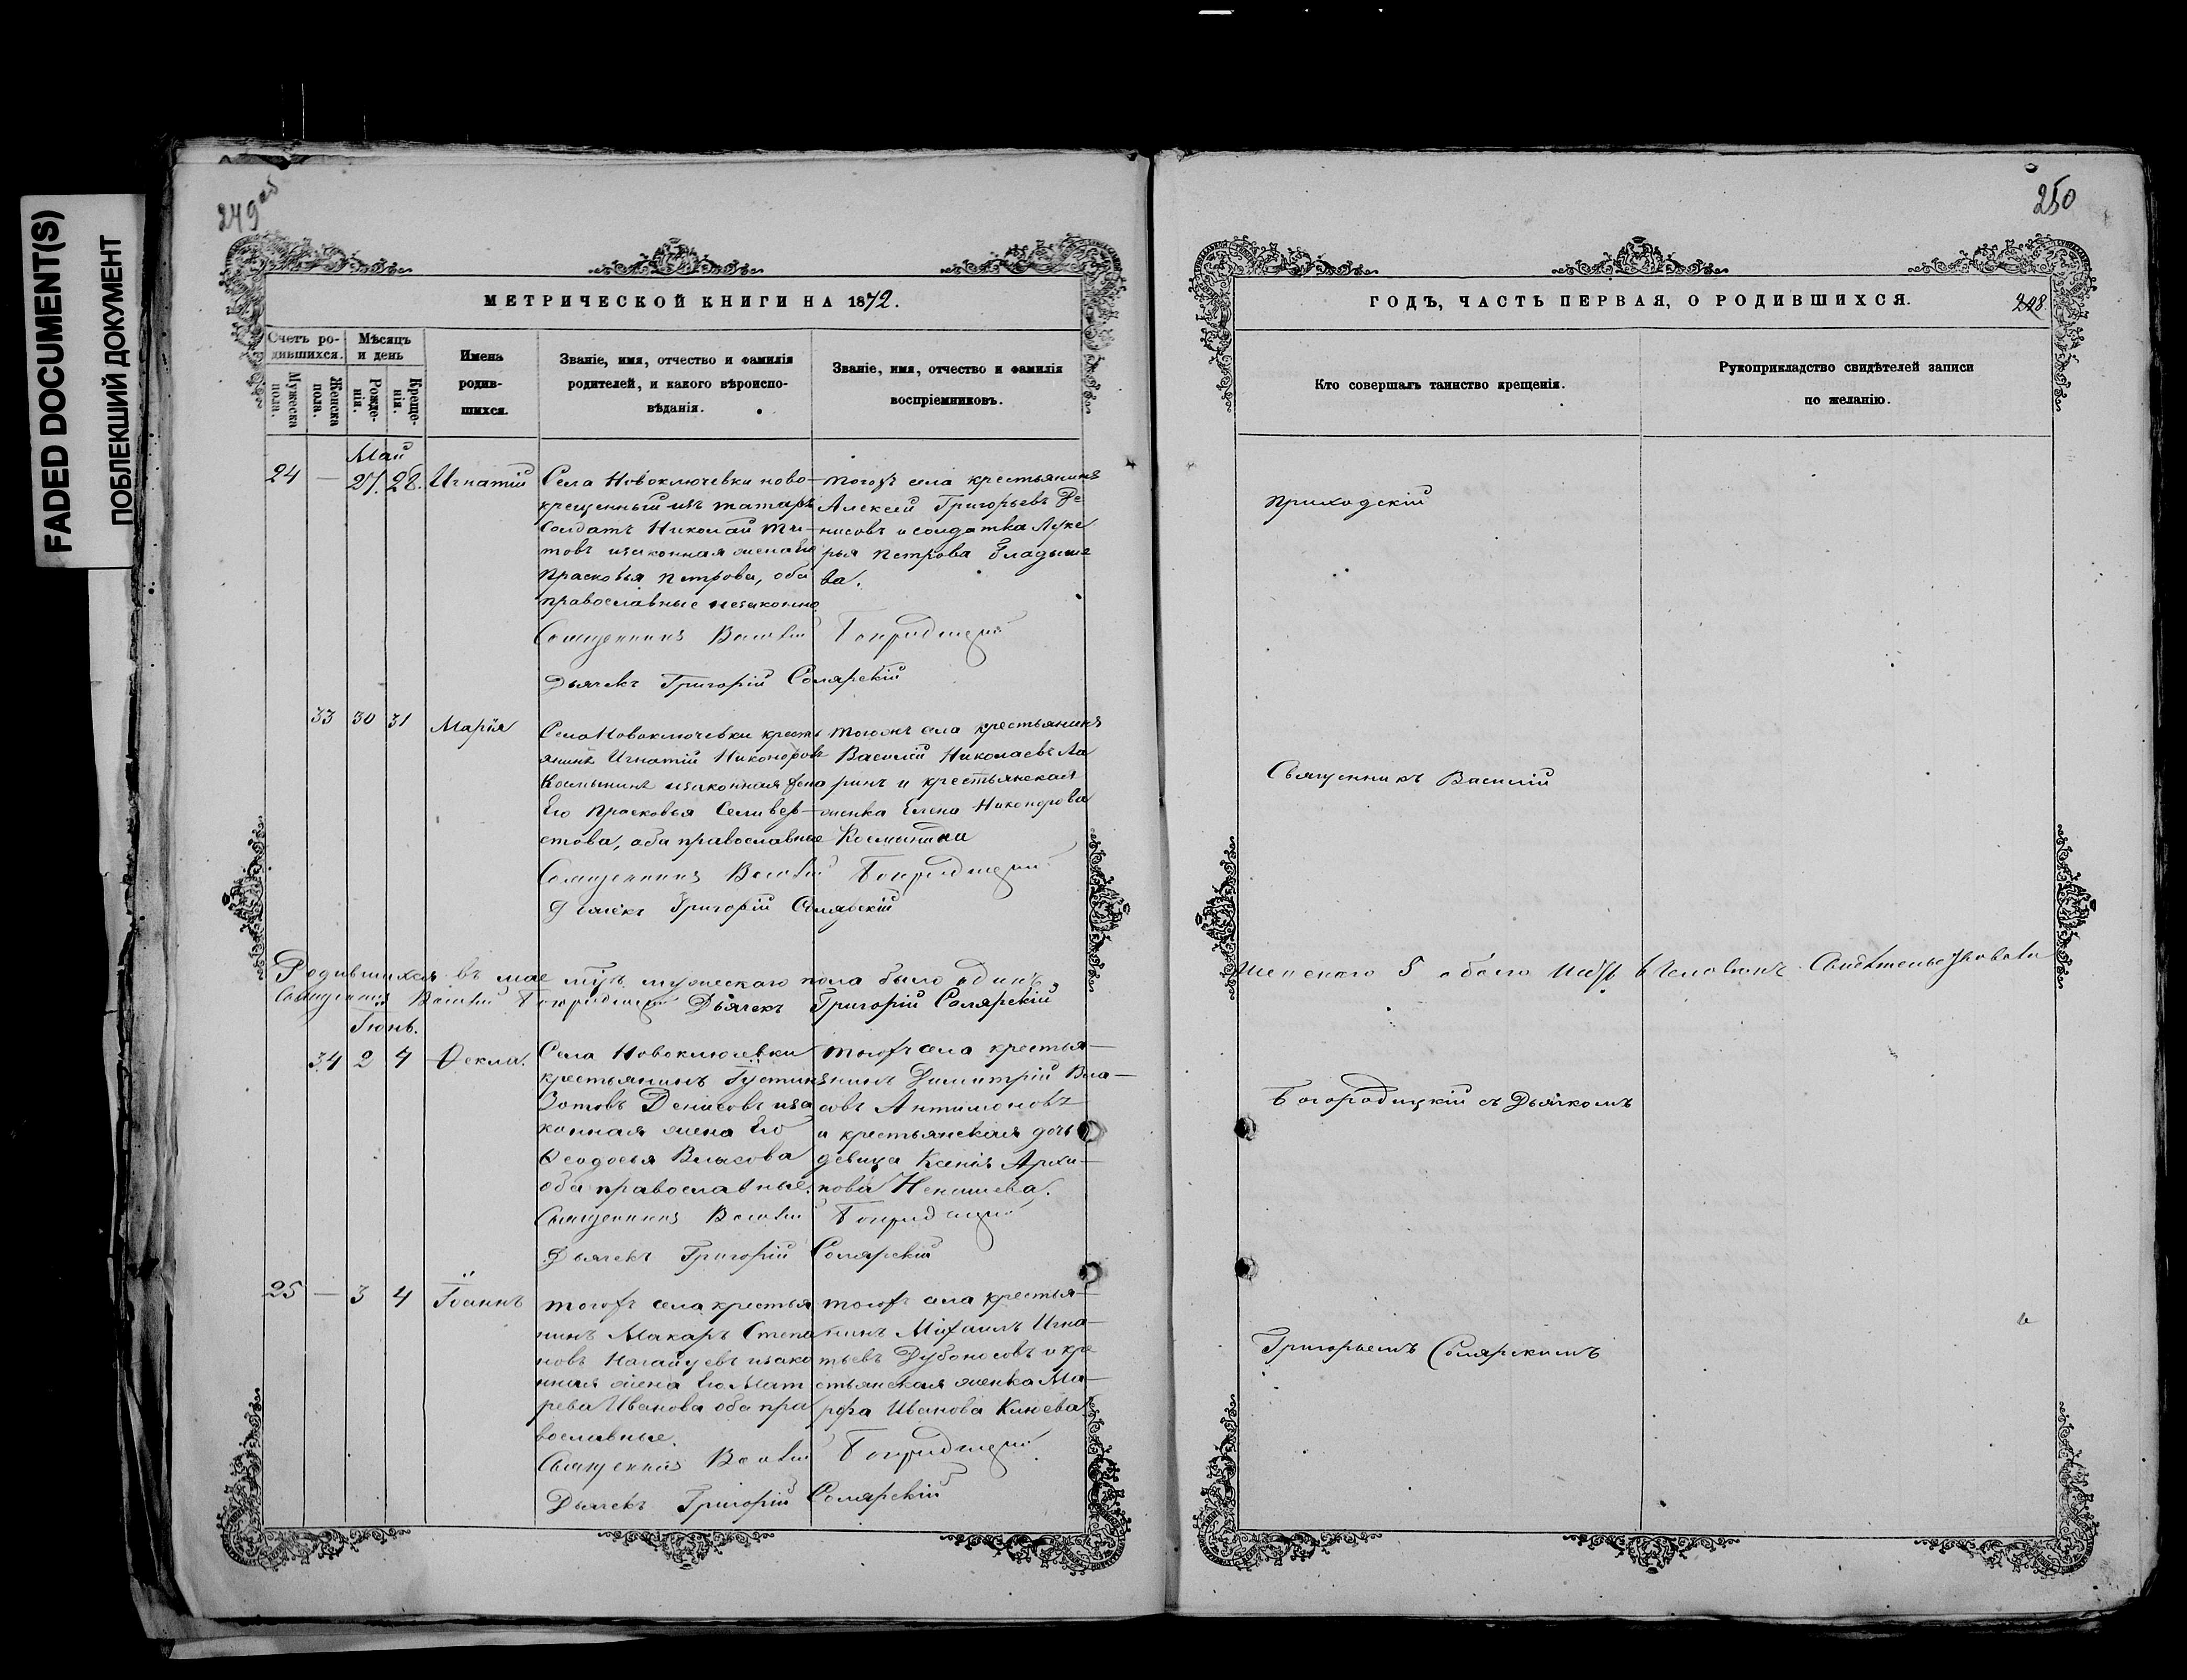 FADED DOCUMENT(S)
ПОБЛЕКШИЙ ДОКУМЕНТ
249 об
МЕТРИЧЕСКОЙ КНИГИ НА 1872.
Счетъ ро-
дившихся.
Мужеска
пола.
Женска
пола.
Мѣсяцъ
и день
Рожде-
нія.
Креще-
нія.
Имена
родив-
шихся.
Званіе, имя, отчество и фамилія
родителей, и какого вѣроиспо-
вѣданія.
Званіе, имя, отчество и фамилія
воспріемниковъ.
Май
24 — 27. 28. Игнатій
Села Новоключевки ново-
крещенный изъ татаръ
Солдатъ Николай Ти-
товъ изаконная жена его
Прасковья Петрова, оба
православные
тогожъ села крестьянинъ
Алексей Григорьевъ Де
нисовъ и солдатка Луке
рья Петрова Гладыше
ва.
Священникъ Василій Богородицкій
Дьячекъ Григорій Солярскій
33 30 31 Марія
Села Новоключевки кресть
янинъ Игнатій Никоноровъ
Космынинъ изаконная жена
Его Прасковья Селивер-
стова, оба православные
тогожъ села крестьянинъ
Василій Николаевъ Ла
ринъ и крестьянская
женка Елена Никонорова
Космынина
Священникъ Василій Богородицкій
Дьячекъ Григорій Солярскій
Родившихся въ мае мцѣ мужескаго пола было одинъ,
Священникъ Василій Богородицкій Дьячекъ Григорій Солярскій
Іюнь.
34 2 4 Ѳекла.
Села Новоключевки
крестьянинъ Іустинъ
Зотовъ Денисовъ иза
конная жена Его
Ѳеодосья Власова
оба православные.
тогожъ села крестья-
нинъ Димитрій Вла-
совъ Антимоновъ
и крестьянская дочь
девица Ксенія Архи-
пова
Священникъ Василій Богородицкій
Дьячекъ Григорій Солярскій
25 — 3 4 Іоаннъ
тогожъ села крестья
нинъ Макаръ Степа
новъ Нагайцевъ изако
нная жена Его Мат
рева Иванова оба пра
вославные.
тогожъ села крестья-
нинъ Михаилъ Игна-
тьевъ Дубоносовъ и кре
стьянская женка Ма-
рфа Иванова Клюева
Священникъ Василій Богородицкій
Дьячекъ Григорій Солярскій
250
ГОДЪ, ЧАСТЬ ПЕРВАЯ, О РОДИВШИХСЯ.
248.
Кто совершалъ таинство крещенія.
Рукоприкладство свидѣтелей записи
по желанію.
Приходскій
Священникъ Василій
женскаго 5 обоего 6 Человекъ Свидѣтельствовали
Богородицкій съ Дьячкомъ
Григорьемъ Солярскимъ